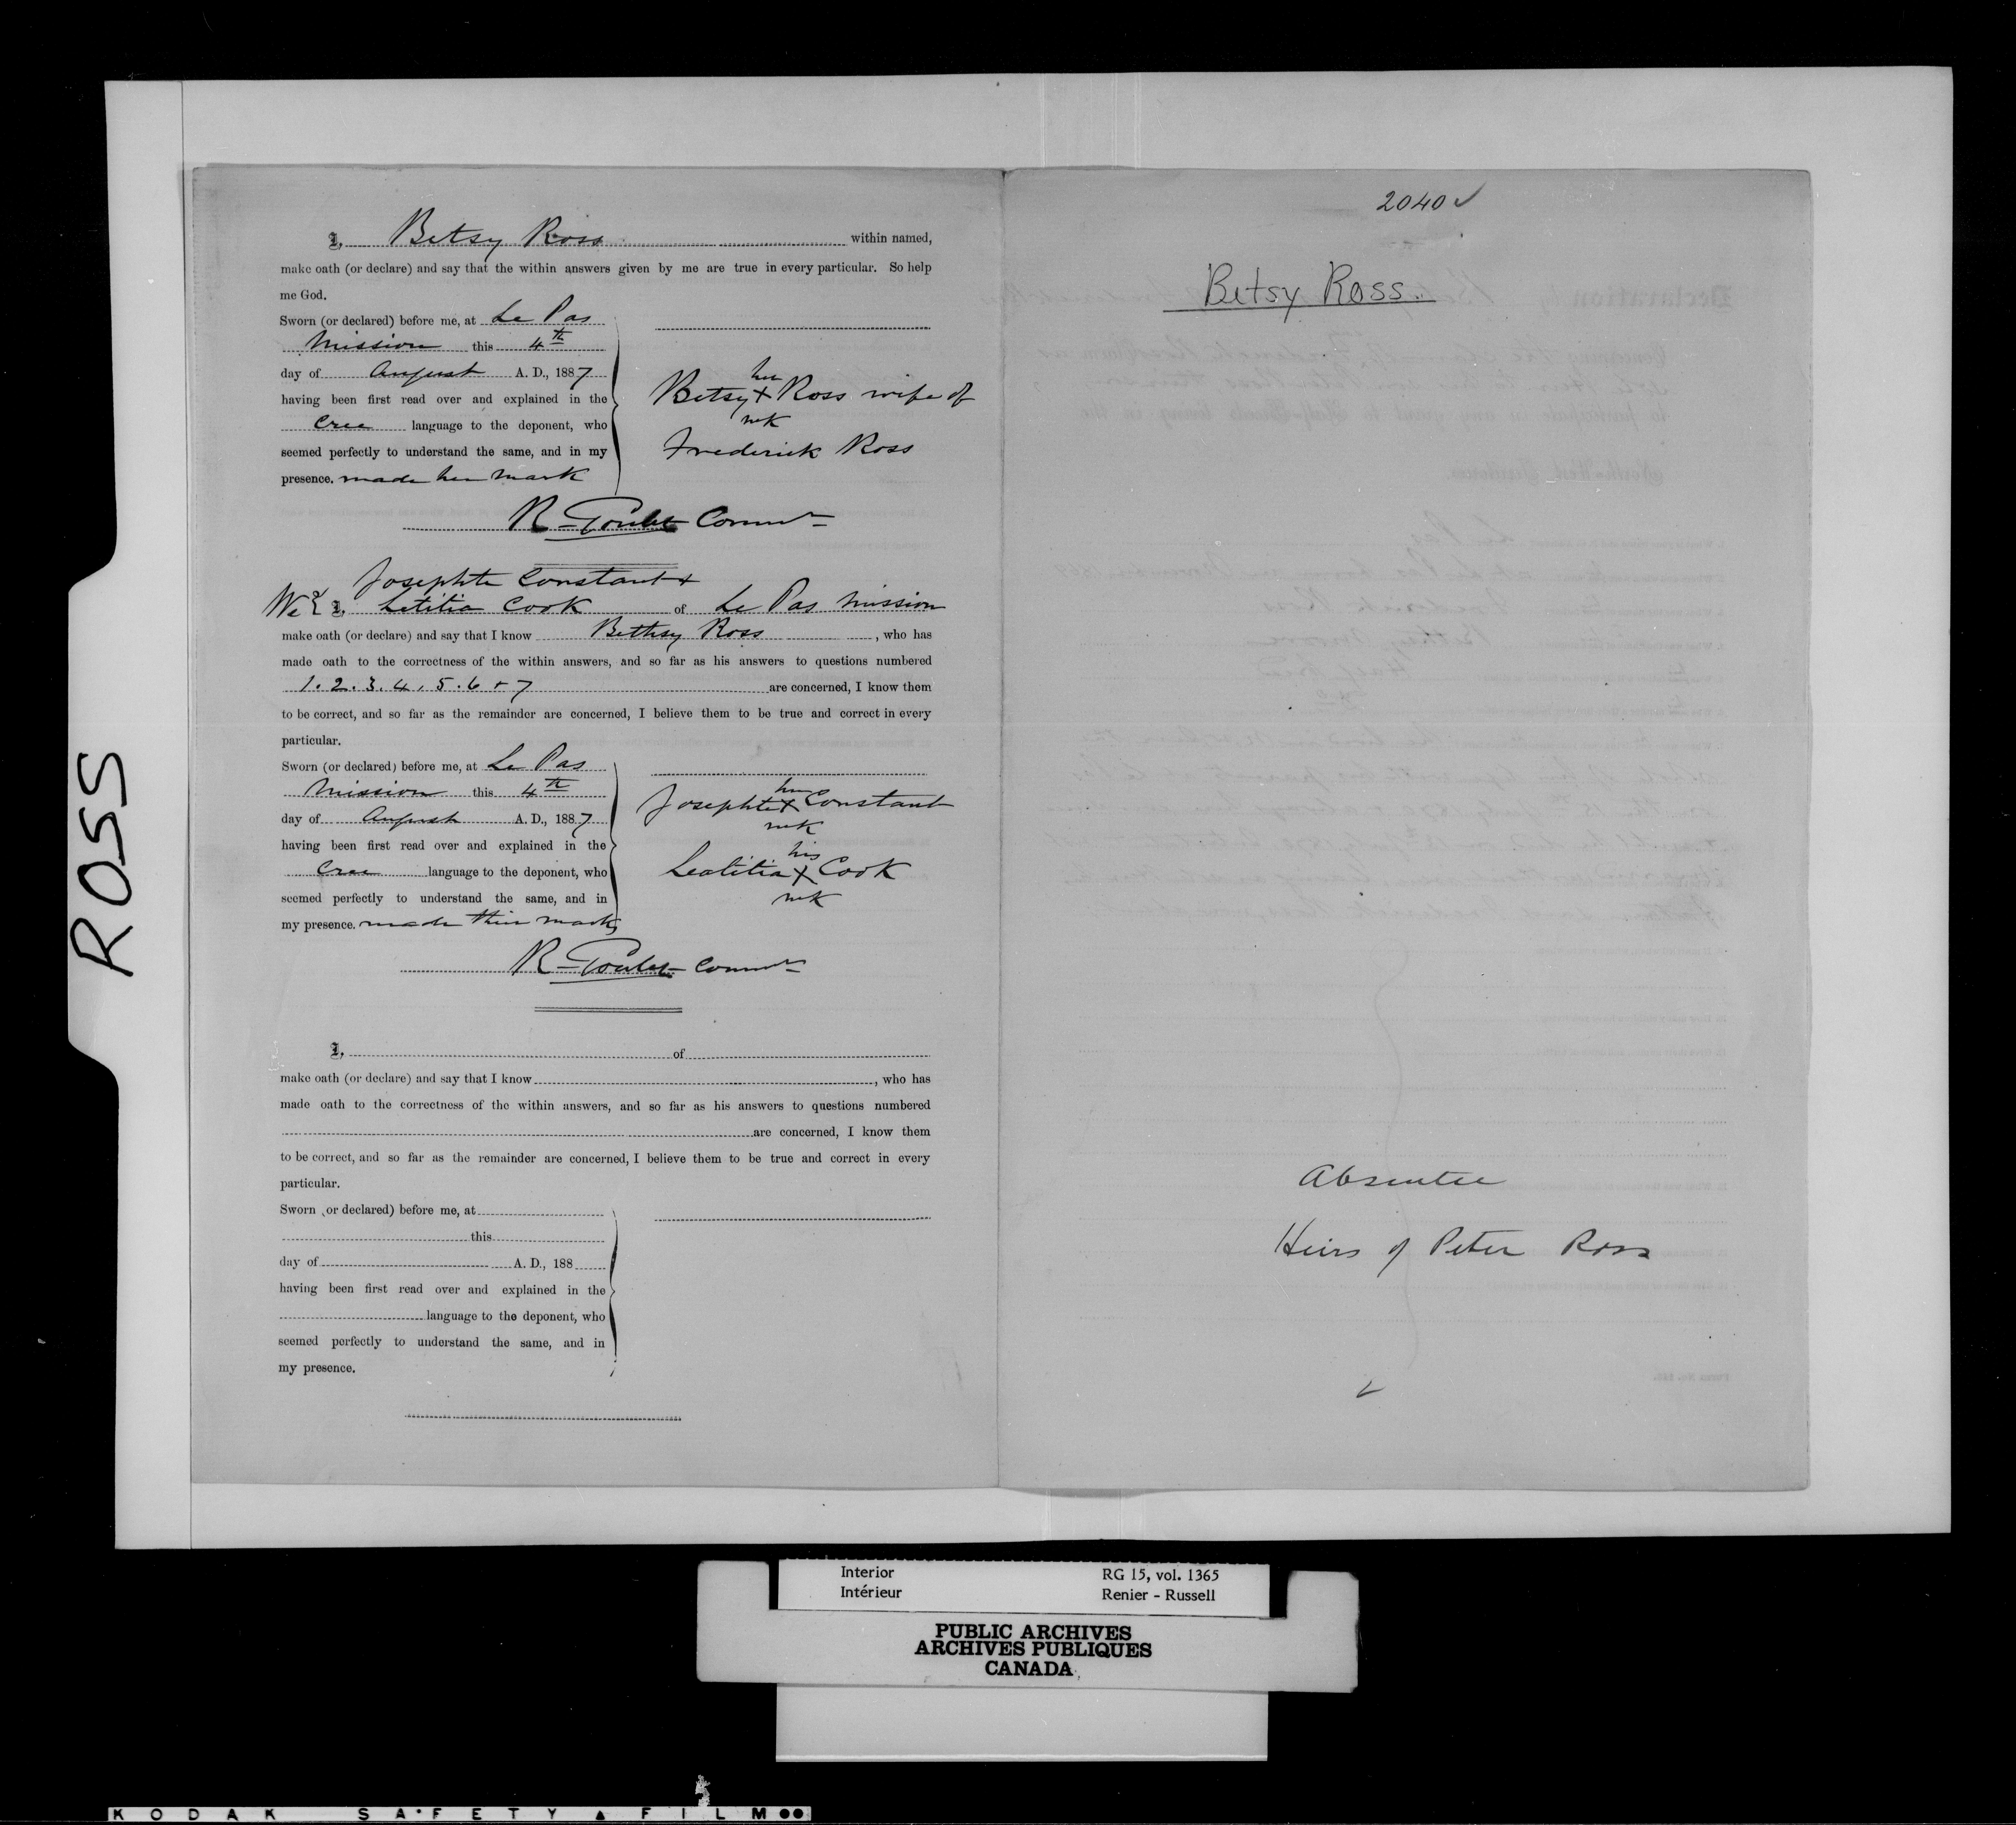 ROSS
I, Betsy Ross within named,
make oath (or declare) and say that the within answers given by me are true in every particular. So help
me God.
Sworn (or declared) before me, at Le Pas
Mission this 4th
day of August A. D., 1887
having been first read over and explained in the
Cree language to the deponent, who
seemed perfectly to understand the same, and in my
presence. made her mark
her
Betsy X Ross wife of
mk
Frederick Ross
R. Goulet Commr
Josephte Constant +
We I, Letitia Cook of Le Pas Mission
make oath (or declare) and say that I know Bethsy Ross, who has
made oath to the correctness of the within answers, and so far as his answers to questions numbered
1. 2. 3. 4. 5. 6 + 7 are concerned, I know them
to be correct, and so far as the remainder are concerned, I believe them to be true and correct in every
particular.
Sworn (or declared) before me, at Le Pas
Mission this 4th
day of August A. D., 1887
having been first read over and explained in the
Cree language to the deponent, who
seemed perfectly to understand the same, and in
my presence. made their marks
her
Josephte X Constant
mk
his
Leatitia X Cook
mk
R. Goulet Commr
I, of
make oath (or declare) and say that I know, who has
made oath to the correctness of the within answers, and so far as his answers to questions numbered
are concerned, I know them
to be correct, and so far as the remainder are concerned, I believe them to be true and correct in every
particular.
Sworn (or declared) before me, at
this
day of A. D., 188
having been first read over and explained in the
language to the deponent, who
seemed perfectly to understand the same, and in
my presence.
2040 ✓
Betsy Ross.
Absentee
Heirs of Peter Ross
Interior RG 15, vol. 1365
Intérieur Renier - Russell
PUBLIC ARCHIVES
ARCHIVES PUBLIQUES
CANADA
KODAK SAFETY FILM